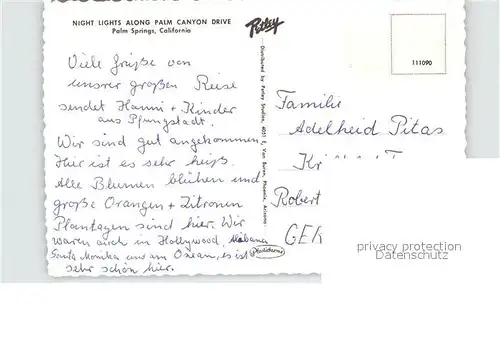 NIGHT LIGHTS ALONG PALM CANYON DRIVE
Palm Springs, California
Petley
Distributed by Petley Studios, 4051 E. Van Buren, Phoenix, Arizona
111090
Viele Grüße von
unsrer großen Reise
sendet Hanni + Kinder
aus Pfungstadt.
Wir sind gut angekommen
Hier ist es sehr heiß.
Alle Blumen blühen und
große Orangen + Zitronen
Plantagen sind hier. Wir
waren auch in Hollywood,
Santa Monika am Ozean, es ist
sehr schön hier.
Plastichrome
Familie
Adelheid Pitas
Kr
Robert
GER
privacy protection
Datenschutz